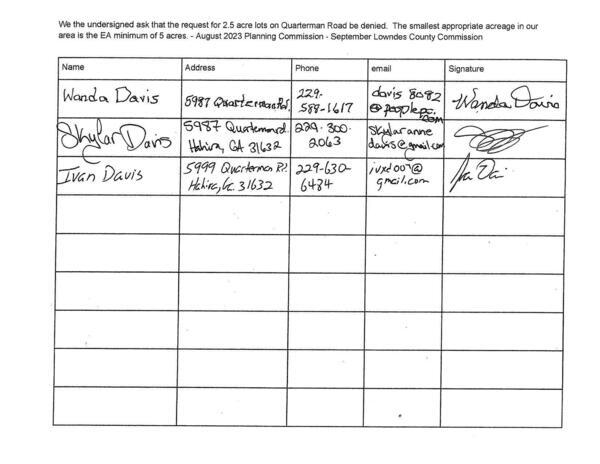 We the undersigned ask that the request for 2.5 acre lots on Quarterman Road be denied. The smallest appropriate acreage in our
area is the EA minimum of 5 acres. - August 2023 Planning Commission - September Lowndes County Commission
Name Address Phone email Signature
Wanda Davis 5987 Quarterman Rd. 229-
588-1617 davis8082
@peoplepc.
com Wanda Davis
Skylar Davis 5987 Quarterman rd.
Hahira, GA 31632 229-300-
2063 skylaranne
davis@gmail.com
Ivan Davis 5999 Quarterman Rd.
Hahira, Ga 31632 229-630-
6484 ivxd007@
gmail.com